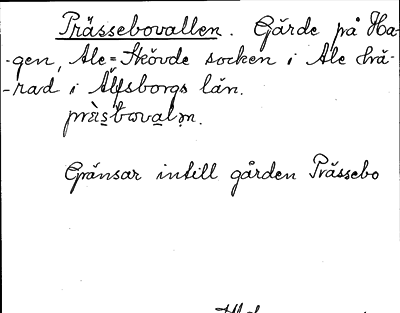 Prässebovallen. Gärde på Ha-
-gen, Ale-Skövde socken i Ale hä-
-rad i Älfsborgs län.
Gränsar intill gården Prässebo